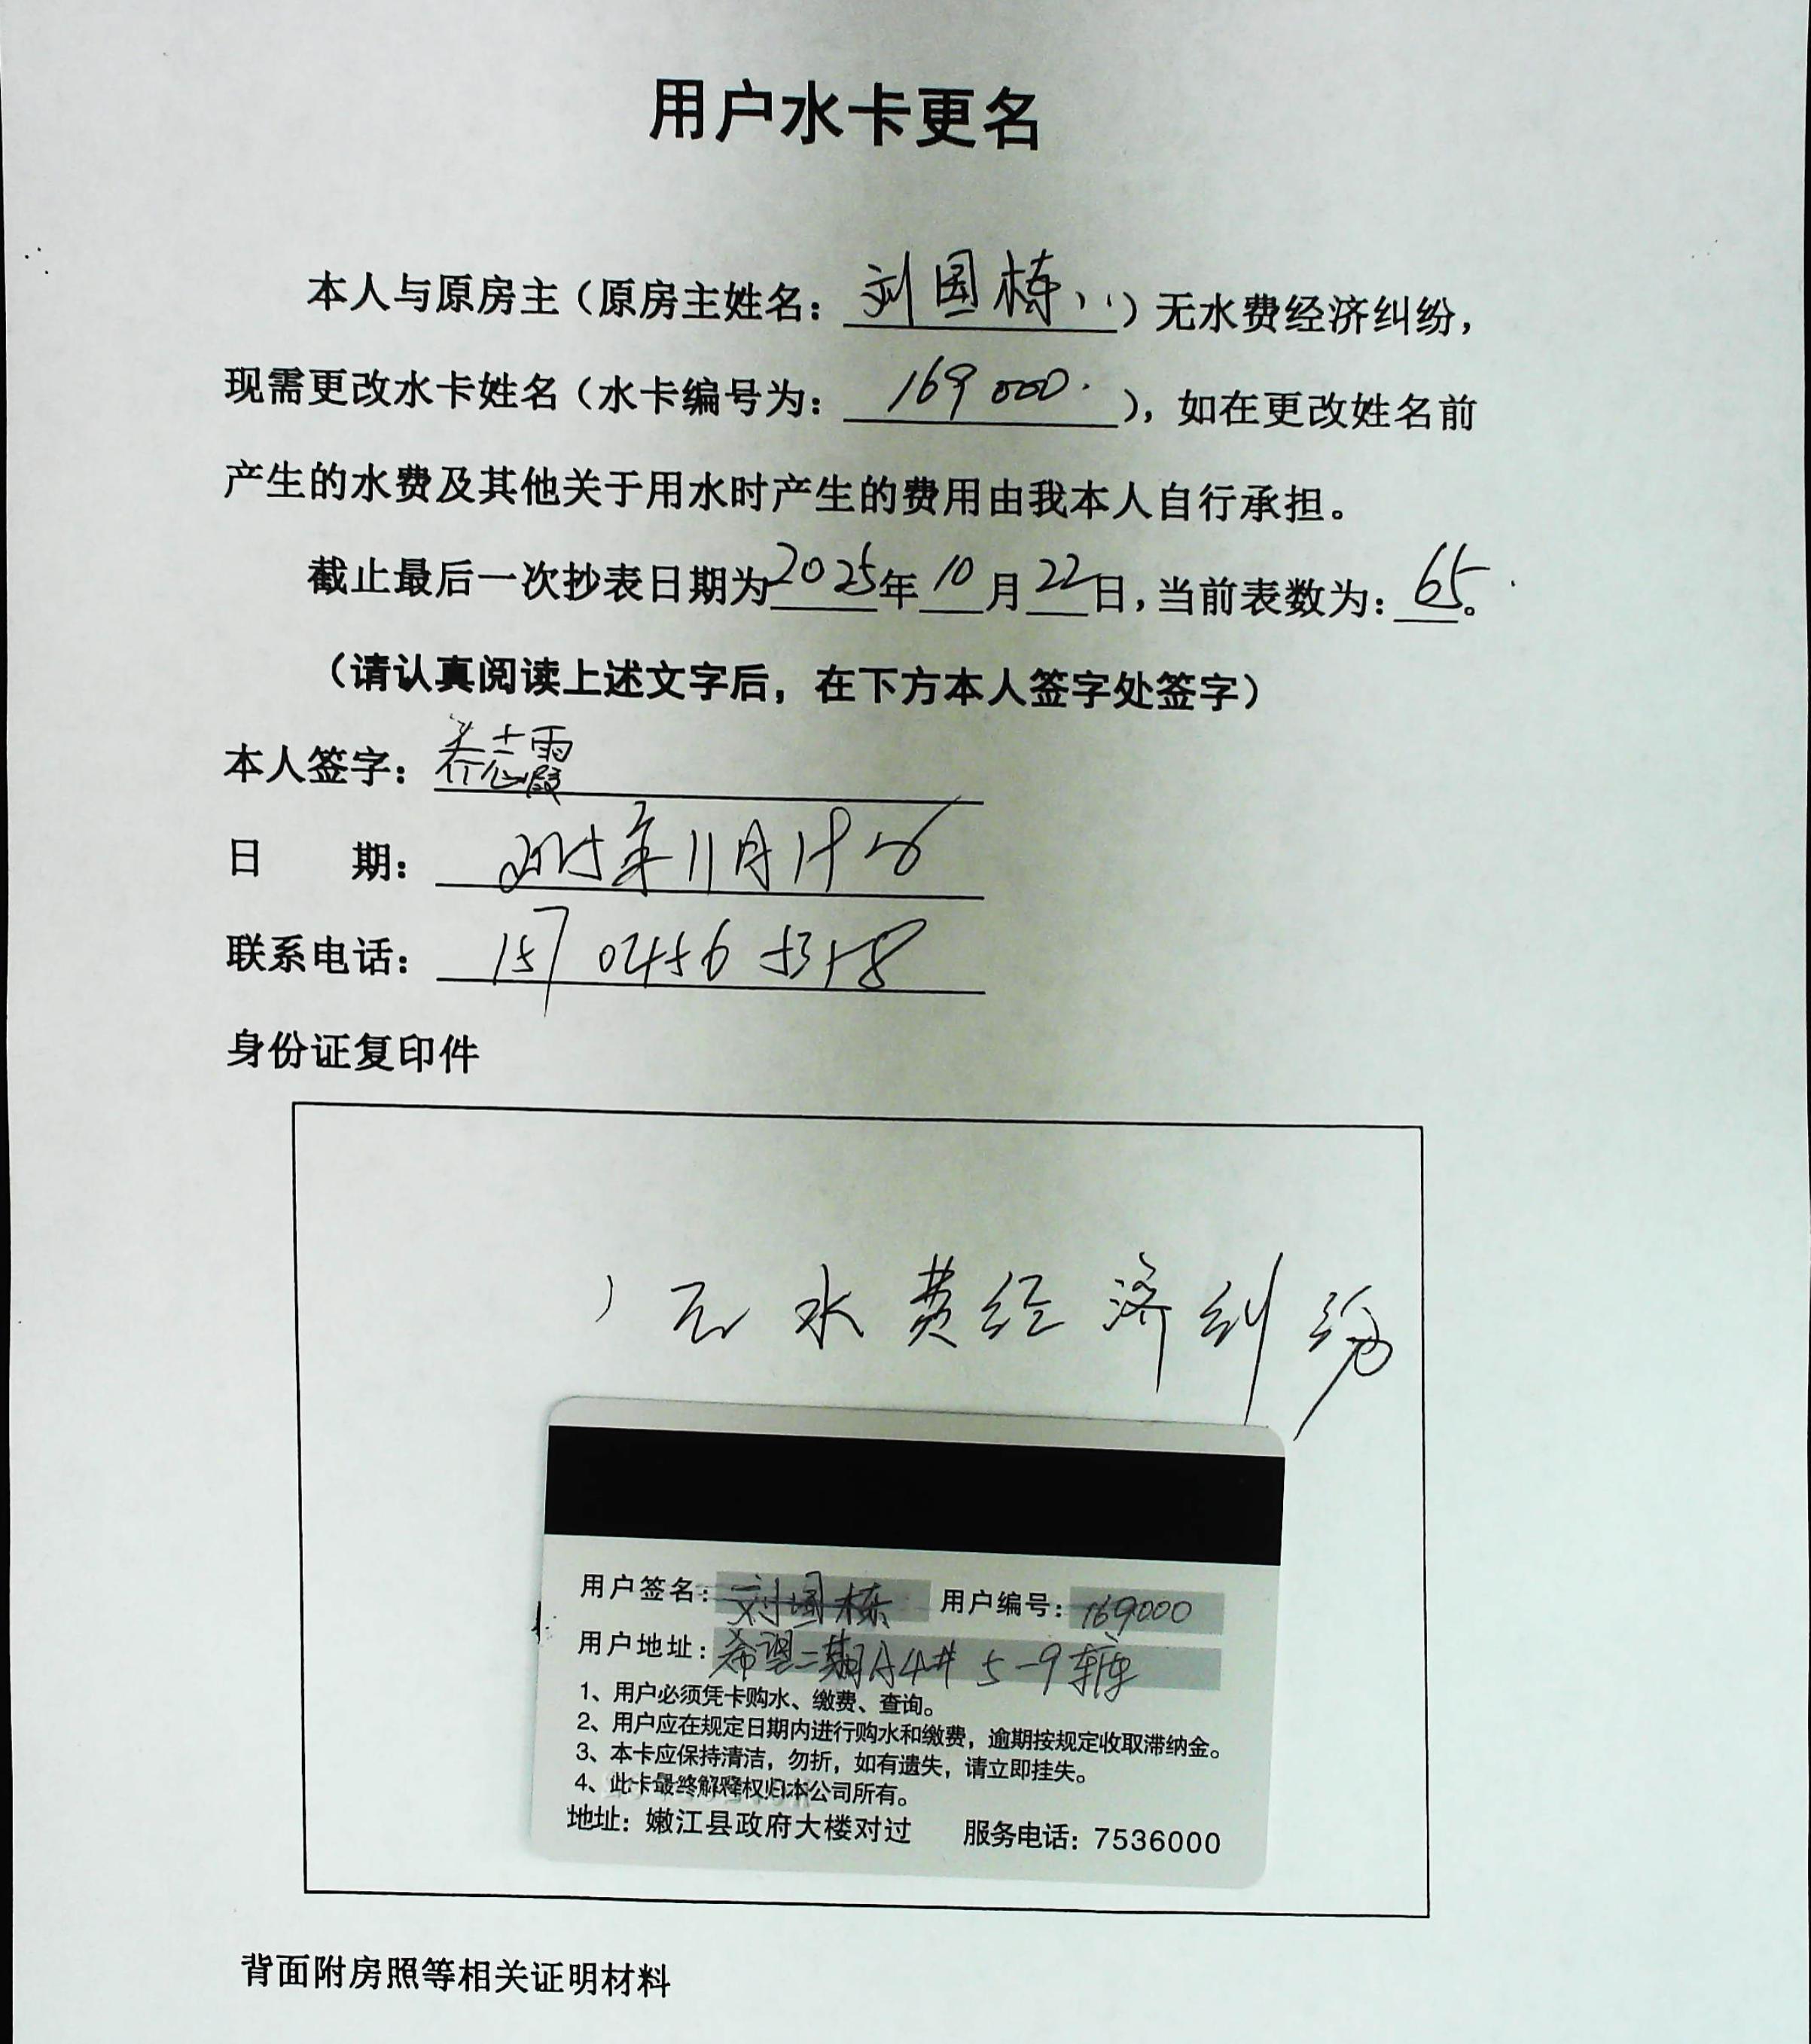 用户水卡更名
本人与原房主（原房主姓名：刘国栋）无水费经济纠纷，
现需更改水卡姓名（水卡编号为：169000），如在更改姓名前
产生的水费及其他关于用水时产生的费用由我本人自行承担。
截止最后一次抄表日期为2025年10月22日，当前表数为：65。
（请认真阅读上述文字后，在下方本人签字处签字）
本人签字：乔志霞
日 期：2025年11月19日
联系电话：157 0456 5358
身份证复印件
无水费经济纠纷
用户签名：刘国栋 用户编号：169000
用户地址：希望二期A4# 5-9车库
1、用户必须凭卡购水、缴费、查询。
2、用户应在规定日期内进行购水和缴费，逾期按规定收取滞纳金。
3、本卡应保持清洁，勿折，如有遗失，请立即挂失。
4、此卡最终解释权归本公司所有。
地址：嫩江县政府大楼对过 服务电话：7536000
背面附房照等相关证明材料